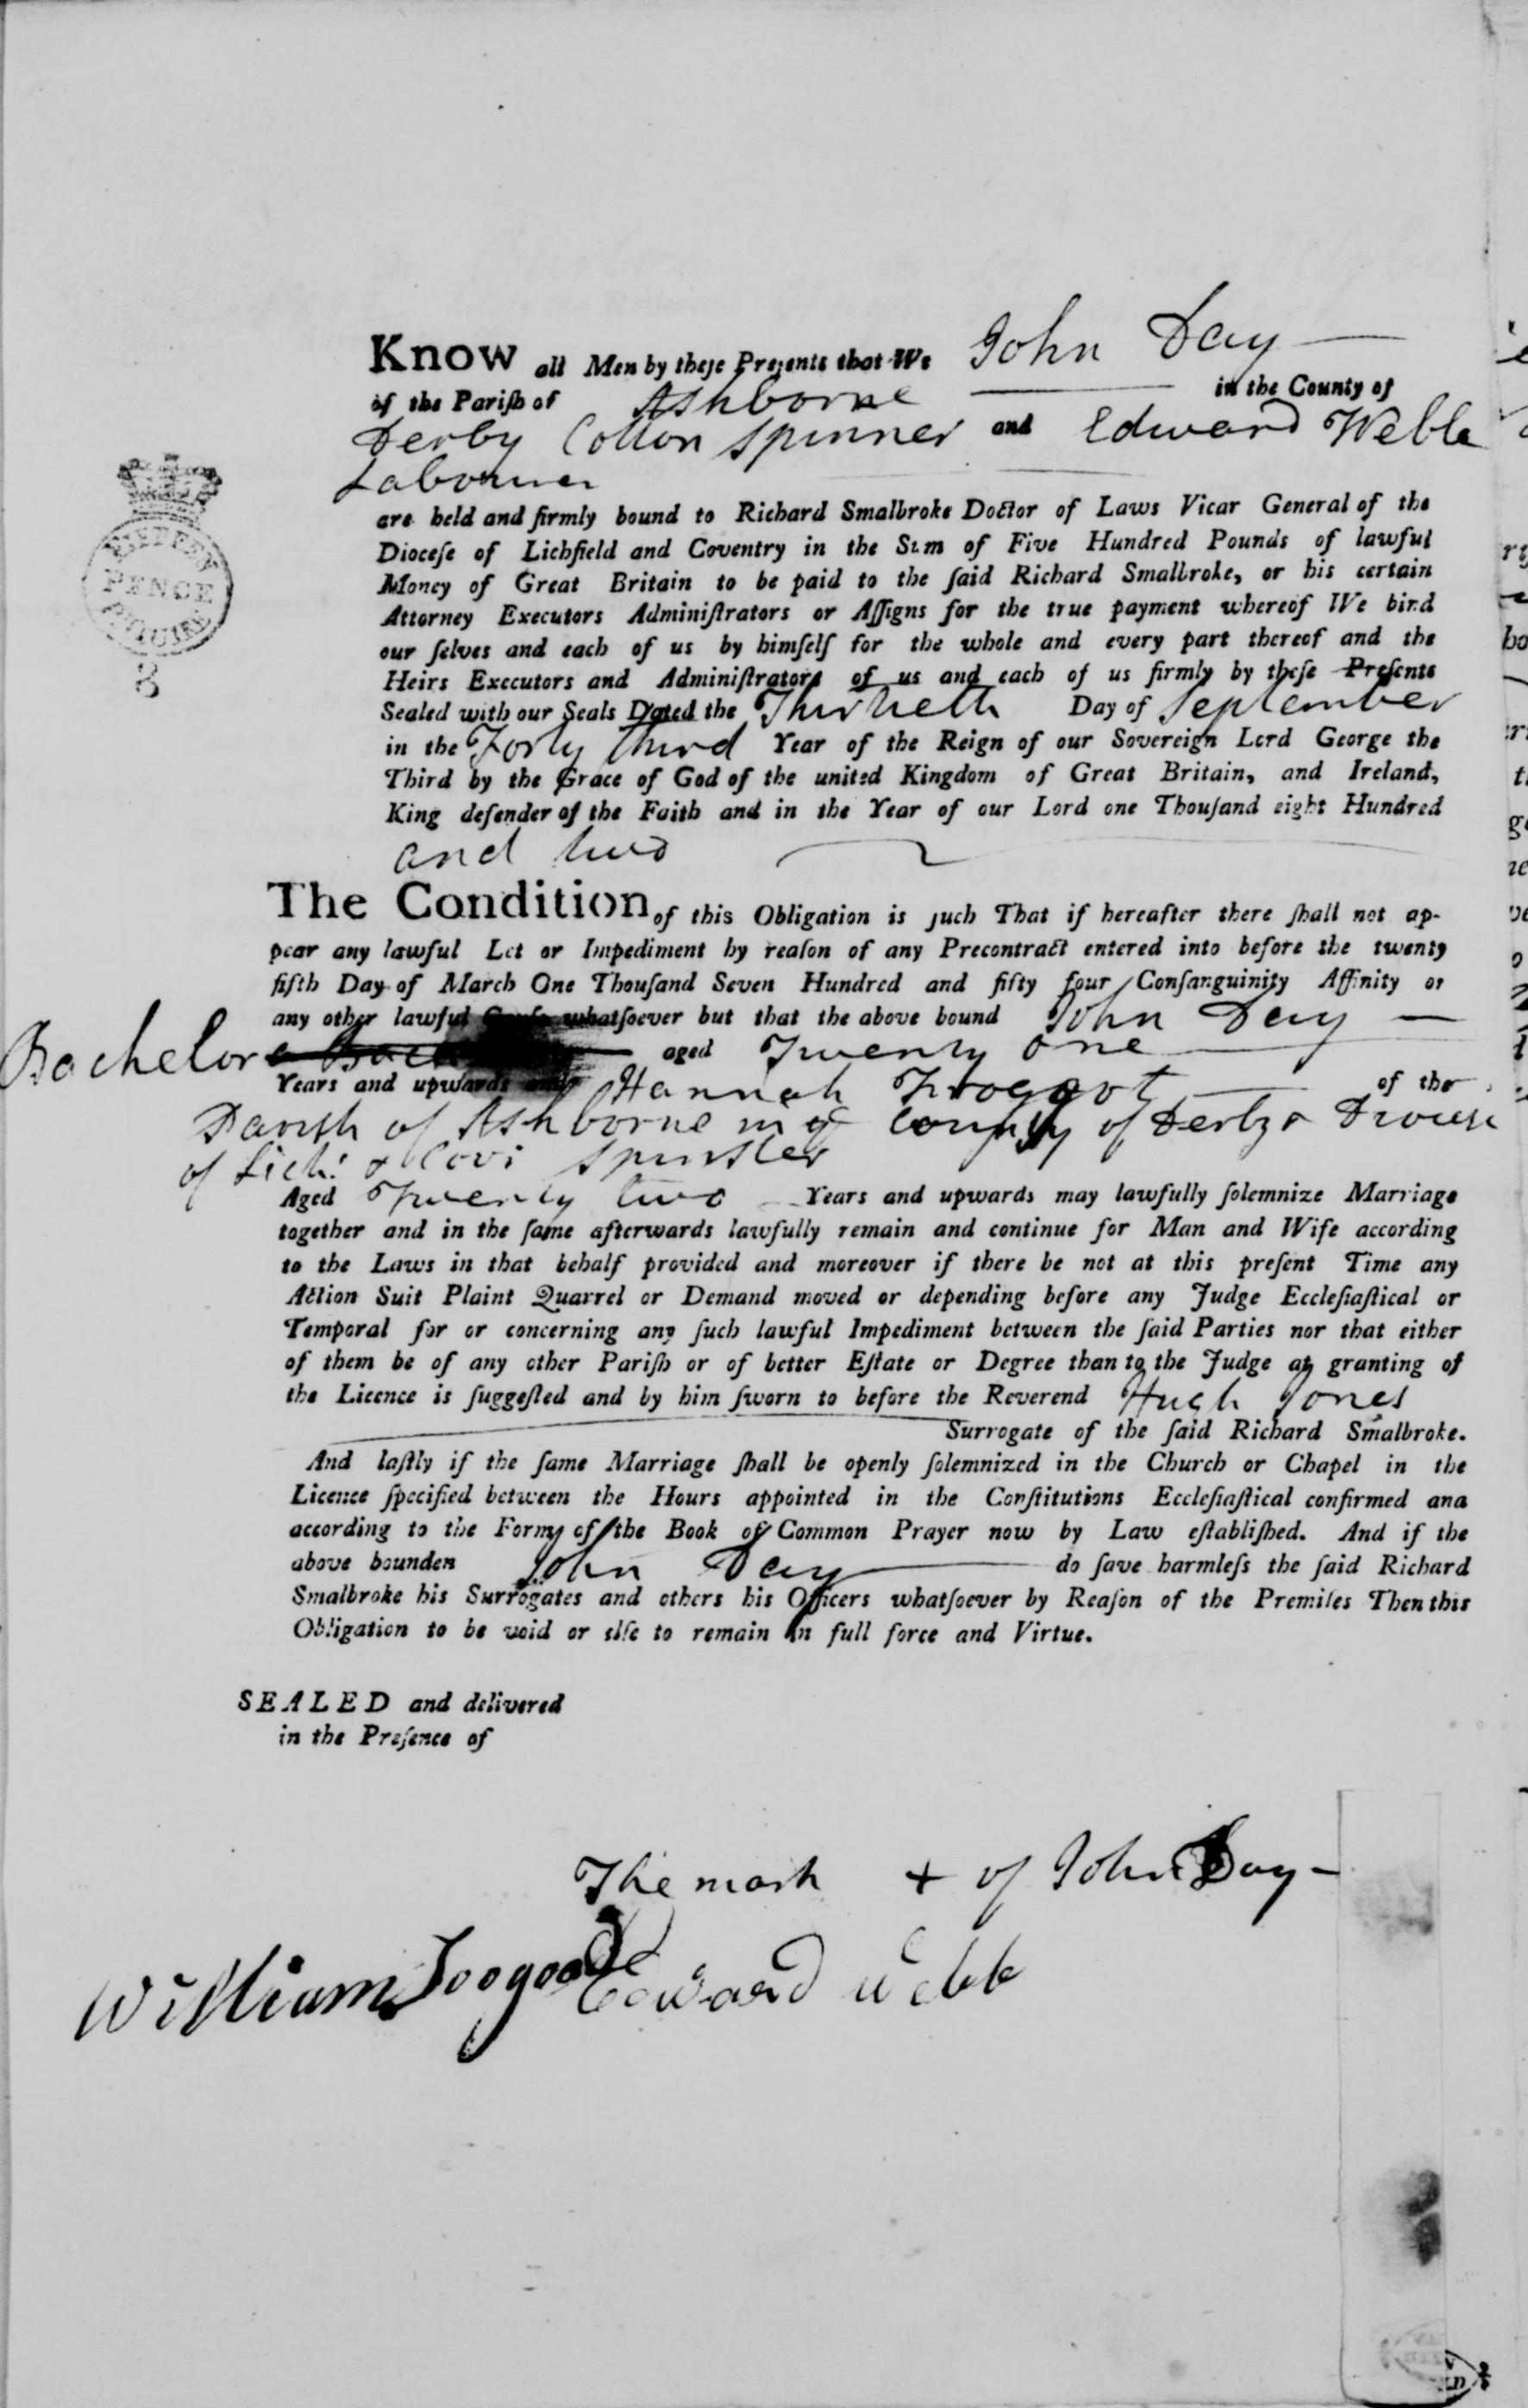 Know all Men by theſe Preſents that We John Day
of the Pariſh of Ashborne in the County of
Derby Cotton Spinner and Edward Webb
Labourer
are held and firmly bound to Richard Smalbroke Doctor of Laws Vicar General of the
Dioceſe of Lichfield and Coventry in the Sum of Five Hundred Pounds of lawful
Money of Great Britain to be paid to the ſaid Richard Smalbroke, or his certain
Attorney Executors Adminiſtrators or Aſſigns for the true payment whereof We bind
our ſelves and each of us by himſelf for the whole and every part thereof and the
Heirs Executors and Adminiſtrators of us and each of us firmly by theſe Preſents
Sealed with our Seals Dated the Thirtieth Day of September
in the Forty third Year of the Reign of our Sovereign Lord George the
Third by the Grace of God of the united Kingdom of Great Britain, and Ireland,
King defender of the Faith and in the Year of our Lord one Thouſand eight Hundred
and two
PENCE
The Condition of this Obligation is ſuch That if hereafter there ſhall not ap-
pear any lawful Let or Impediment by reaſon of any Precontract entered into before the twenty
fifth Day of March One Thouſand Seven Hundred and fifty four Conſanguinity Affinity or
any other lawful Cauſe whatſoever but that the above bound John Day
Bachelor aged Twenty one
Years and upwards and Hannah Froggot of the
Parish of Ashborne in ye County of Derby &
of Lich: & Cov: Spinster
Aged Twenty two Years and upwards may lawfully ſolemnize Marriage
together and in the ſame afterwards lawfully remain and continue for Man and Wife according
to the Laws in that behalf provided and moreover if there be not at this preſent Time any
Action Suit Plaint Quarrel or Demand moved or depending before any Judge Eccleſiaſtical or
Temporal for or concerning any ſuch lawful Impediment between the ſaid Parties nor that either
of them be of any other Pariſh or of better Eſtate or Degree than to the Judge at granting of
the Licence is ſuggeſted and by him ſworn to before the Reverend Hugh Jones
Surrogate of the ſaid Richard Smalbroke.
And laſtly if the ſame Marriage ſhall be openly ſolemnized in the Church or Chapel in the
Licence ſpecified between the Hours appointed in the Conſtitutions Eccleſiaſtical confirmed and
according to the Form of the Book of Common Prayer now by Law eſtabliſhed. And if the
above bounden John Day do ſave harmleſs the ſaid Richard
Smalbroke his Surrogates and others his Officers whatſoever by Reaſon of the Premiſes Then this
Obligation to be void or elſe to remain in full force and Virtue.
SEALED and delivered
in the Preſence of
The mark + of John Day
William Toogood
Edward Webb